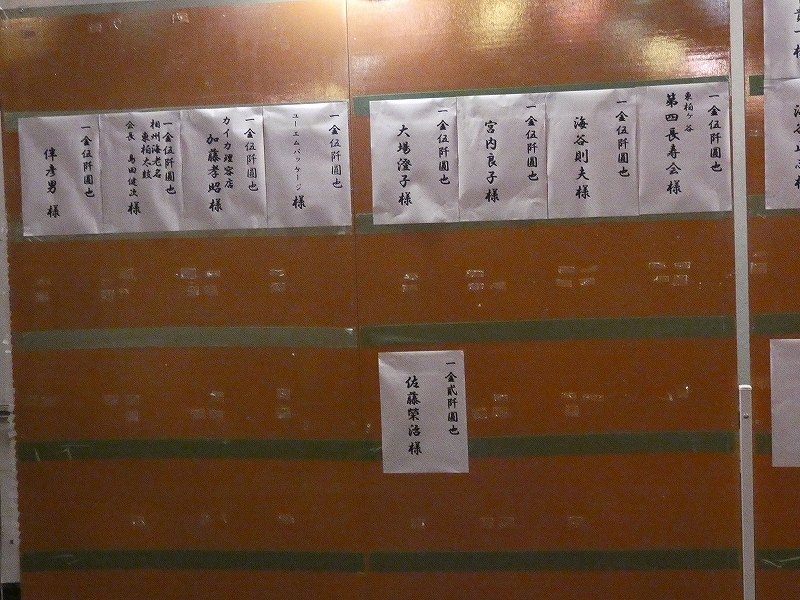 一金伍阡圓也
東柏ヶ谷
第四長寿会様
一金伍阡圓也
海谷則夫様
一金伍阡圓也
宮内良子様
一金伍阡圓也
大場澄子様
一金伍阡圓也
ユーエムパッケージ様
一金伍阡圓也
カイカ理容店
加藤孝昭様
一金伍阡圓也
相州海老名
東柏太鼓
会長 島田健次様
一金伍阡圓也
伴彦男様
一金貳阡圓也
佐藤榮治様